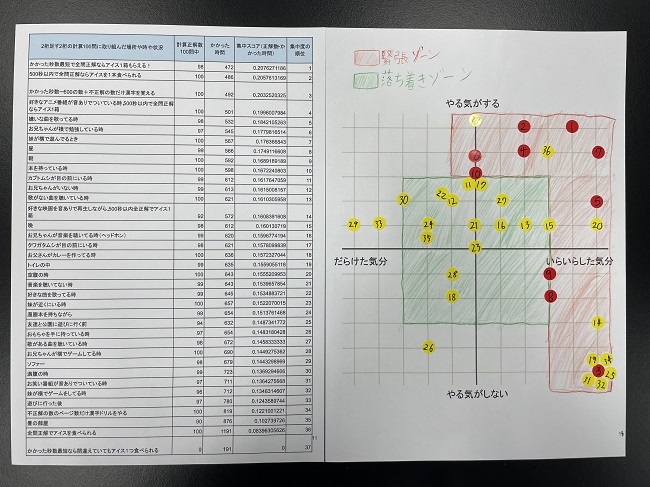 2桁足す2桁の計算100問に取り組んだ場所や時や状況 計算正解数100問中 かかった時間 集中スコア(正解数÷かかった時間) 集中度の順位
かかった秒数最短で全問正解ならアイス1箱もらえる! 98 472 0.2076271186 1
500秒以内で全問正解ならアイスを1本食べられる 100 486 0.2057613169 2
かかった秒数−600の数+不正解の数だけ漢字を覚える 100 492 0.2032520325 3
好きなアニメ番組が音ありでついている時,500秒以内で全問正解ならアイス1箱 100 501 0.1996007984 4
嫌いな曲を歌ってる時 98 532 0.1842105263 5
お兄ちゃんが横で勉強している時 97 545 0.1779816514 6
妹が横で遊んでるとき 100 567 0.176366843 7
昼 99 566 0.1749116608 8
朝 100 592 0.1689189189 9
本を持っている時 100 598 0.1672240803 10
カブトムシが目の前にいる時 99 612 0.1617647059 11
お兄ちゃんがいない時 99 613 0.1615008157 12
歌がない曲を聴いている時 100 621 0.1610305958 13
好きな映画を音ありで再生しながら,500秒以内全問正解でアイス1箱 92 572 0.1608391608 14
晩 99 618 0.160130719 15
お兄ちゃんが音楽を聴いてる時(ヘッドホン) 99 620 0.1596774194 16
クワガタムシが目の前にいる時 98 621 0.1578099839 17
お父さんがカレーを作ってる時 100 636 0.1572327044 18
トイレの中 99 635 0.1559055118 19
空腹の時 100 643 0.1555209953 20
音楽を聴いてない時 99 643 0.1539657854 21
好きな曲を歌ってる時 99 645 0.1534883721 22
妹が近くにいる時 100 657 0.1522070015 23
漫画本を持ちながら 99 654 0.1513761468 24
友達と公園に遊びに行く前 94 632 0.1487341772 25
おもちゃを手に持っている時 97 654 0.1483180428 26
歌がある曲を聴いている時 98 672 0.1458333333 27
お兄ちゃんが横でゲームしてる時 100 690 0.1449275362 28
ソファー 98 679 0.1443298969 29
満腹の時 99 723 0.1369294606 30
お笑い番組が音ありでついている時 97 711 0.1364275668 31
妹が横でゲームをしてる時 96 712 0.1348314607 32
遊びに行った後 97 780 0.1243589744 33
不正解の数のページ数だけ漢字ドリルをやる 100 819 0.1221001221 34
畳の部屋 90 876 0.102739726 35
全問正解でアイスを食べられる 100 1191 0.08396305626 36
かかった秒数最短なら間違えていてもアイス1つ食べられる 0 191 0 37
11
緊張ゾーン
落ち着きゾーン
やる気がする
2 1
4 36 7
10
11 17
30 22 12 27 5
29 33 24 21 16 13 15 20
35
23
だらけた気分 いらいらした気分
28 9
18 8
14
26
19 34
3 25
31 32
やる気がしない